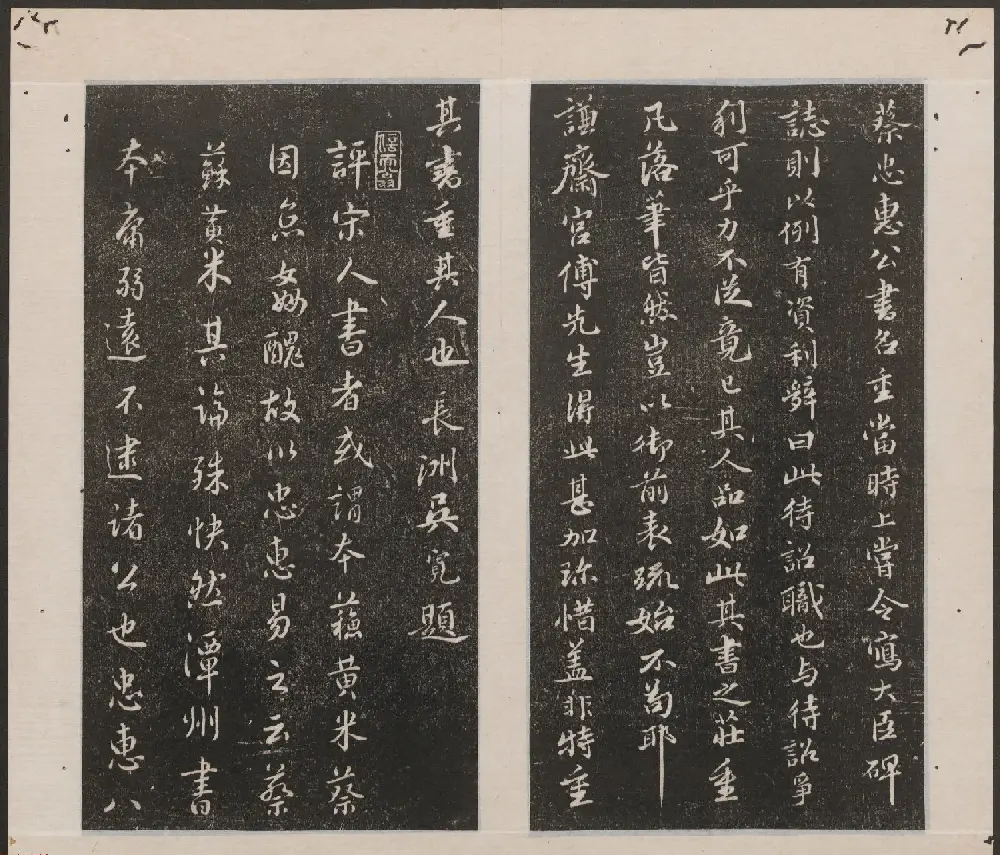 蔡忠惠公書名重當時上嘗令寫大臣碑
誌則以例有資利辭曰此待詔職也与待詔爭
利可乎力不從竟已其人品如此其書之莊重
凡落筆皆然豈以御前表疏始不茍耶
謙齋宮傅先生得此甚加珍惜蓋非特重
其書重其人也長洲吳寬題
評宋人書者或謂本蘇黃米蔡
因京姦醜故以忠惠易之云蔡
蘇黃米其論殊快然潭州書
本庸弱遠不逮諸公也忠惠八